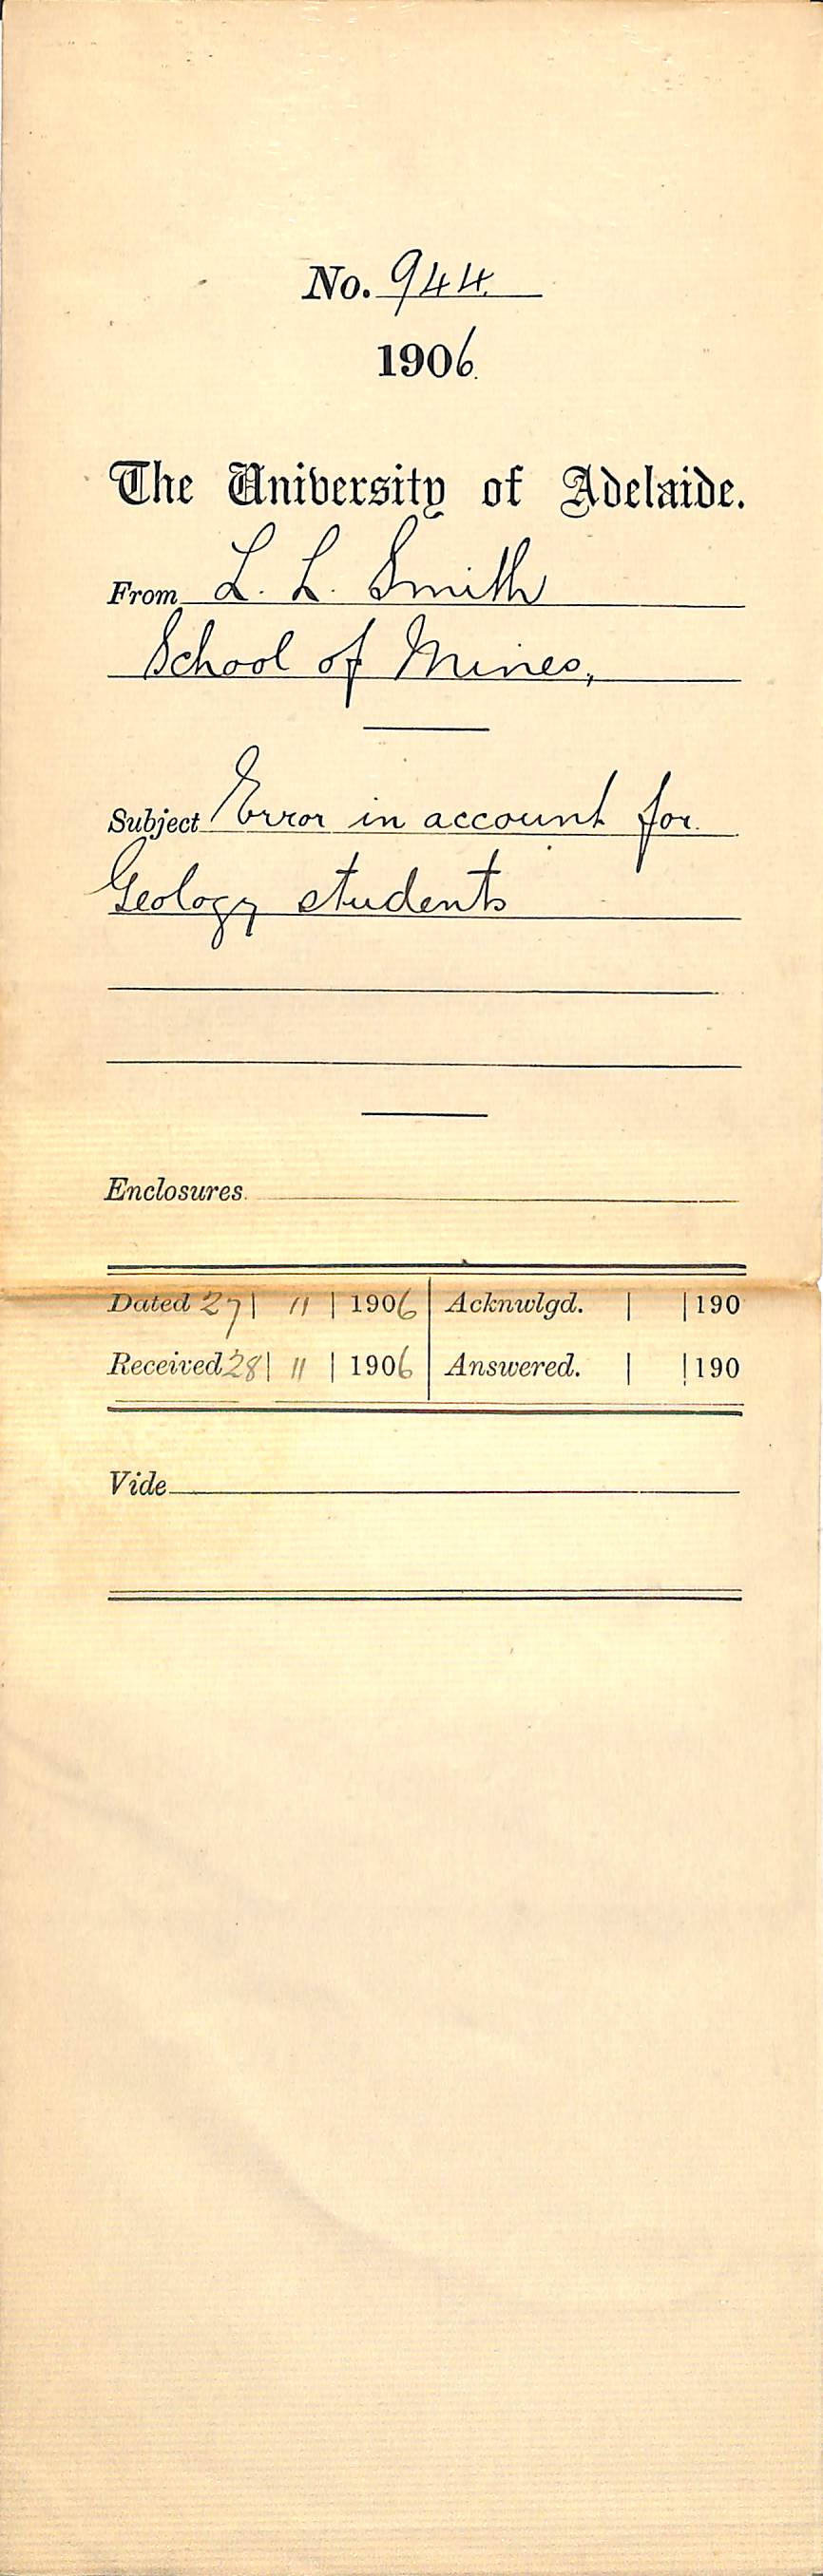 No. 944.
1906.
The University of Adelaide.
From L. L. Smith
School of Mines,
Subject Error in account for
Geology students
Enclosures
Dated 27 | 11 | 1906 | Acknwlgd. | | 190
Received 28 | 11 | 1906 | Answered. | | 190
Vide